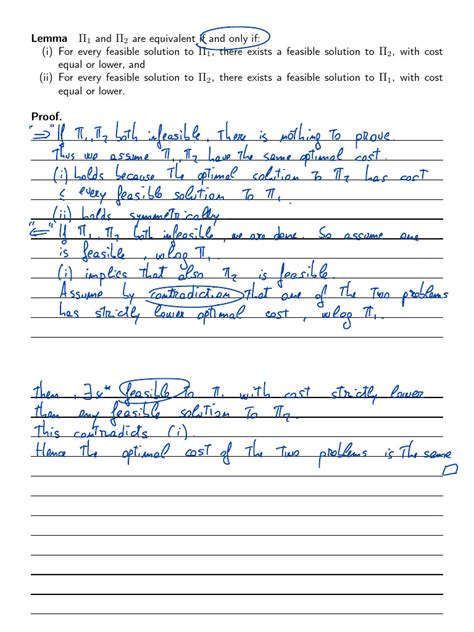 Lemma Π₁ and Π₂ are equivalent if and only if:
(i) For every feasible solution to Π₁, there exists a feasible solution to Π₂, with cost
equal or lower, and
(ii) For every feasible solution to Π₂, there exists a feasible solution to Π₁, with cost
equal or lower.
Proof.
"⇒" If Π₁, Π₂ both infeasible, There is nothing To prove.
Thus we assume Π₁, Π₂ have The same optimal cost.
(i) holds because The optimal solution To Π₂ has cost
≤ every feasible solution To Π₁.
(ii) holds symmetrically
"⇐" If Π₁, Π₂ both infeasible, we are done. So assume one
is feasible, wlog Π₁.
(i) implies that also Π₂ is feasible.
Assume by contradiction That one of The Two problems
has strictly lower optimal cost, wlog Π₁.
then, ∃ x* feasible to Π₁ with cost strictly lower
than any feasible solution To Π₂.
This contradicts (i).
Hence The optimal cost of The Two problems is The same